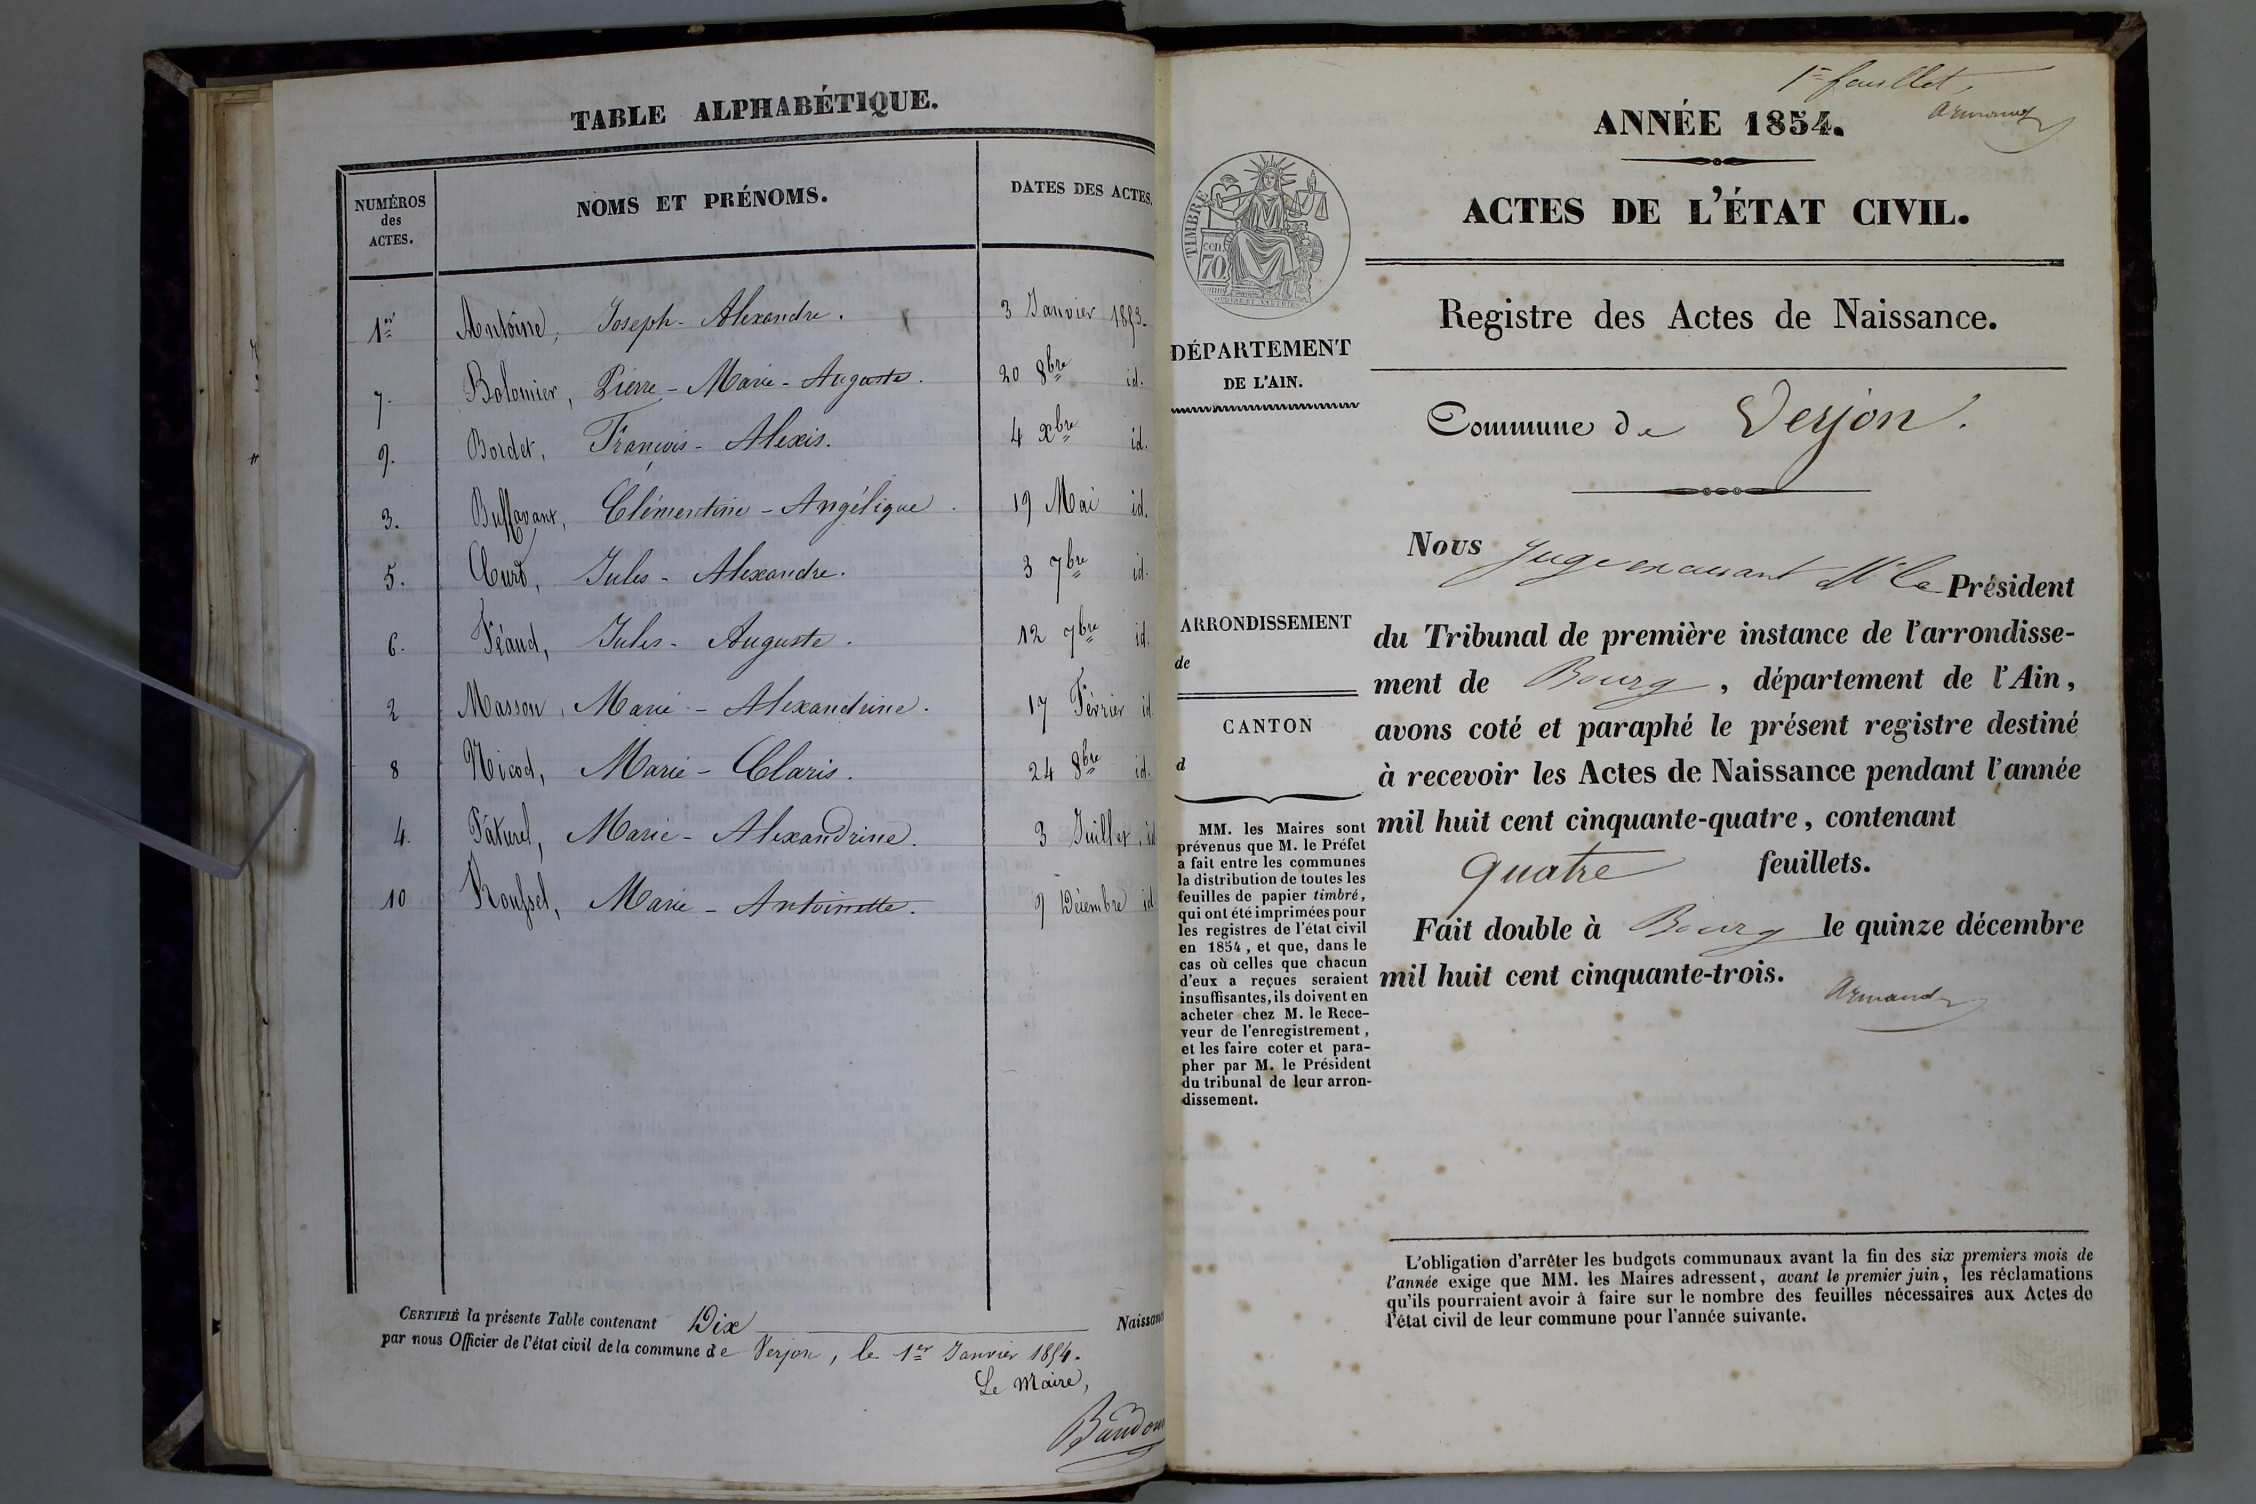 TABLE ALPHABÉTIQUE.
NUMÉROS des ACTES. NOMS ET PRÉNOMS. DATES DES ACTES.
1er Antoine, Joseph - Alexandre. 3 Janvier 1853.
7. Bolomier, Pierre - Marie - Auguste. 20 8bre id.
9. Bordet, François - Alexis. 4 Xbre id.
3. Buffavant, Clémentine - Angélique. 19 Mai id.
5. Curt, Jules - Alexandre. 3 7bre id.
6. Féaud, Jules - Auguste. 12 7bre id.
2 Masson, Marie - Alexandrine. 17 Février id.
8 Nicod, Marie - Claris. 24 8bre id.
4. Pâturel, Marie - Alexandrine. 3 Juillet, id
10 Roussel, Marie - Antoinette. 9 Décembre id
CERTIFIÉ la présente Table contenant Dix Naissanc
par nous Officier de l'état civil de la commune de Verjon, le 1er Janvier 1854.
Le Maire,
1er feuillet,
Armand
ANNÉE 1854.
ACTES DE L'ÉTAT CIVIL.
Registre des Actes de Naissance.
TIMBRE
70 cen.
DÉPARTEMENT
DE L'AIN.
ARRONDISSEMENT
de
CANTON
d
MM. les Maires sont
prévenus que M. le Préfet
a fait entre les communes
la distribution de toutes les
feuilles de papier timbré,
qui ont été imprimées pour
les registres de l'état civil
en 1854, et que, dans le
cas où celles que chacun
d'eux a reçues seraient
insuffisantes, ils doivent en
acheter chez M. le Rece-
veur de l'enregistrement,
et les faire coter et para-
pher par M. le Président
du tribunal de leur arron-
dissement.
Commune de Verjon.
Nous Juge excusant Mr le Président
du Tribunal de première instance de l'arrondisse-
ment de Bourg, département de l'Ain,
avons coté et paraphé le présent registre destiné
à recevoir les Actes de Naissance pendant l'année
mil huit cent cinquante-quatre, contenant
quatre feuillets.
Fait double à Bourg le quinze décembre
mil huit cent cinquante-trois.
Armand
L'obligation d'arrêter les budgets communaux avant la fin des six premiers mois de
l'année exige que MM. les Maires adressent, avant le premier juin, les réclamations
qu'ils pourraient avoir à faire sur le nombre des feuilles nécessaires aux Actes de
l'état civil de leur commune pour l'année suivante.